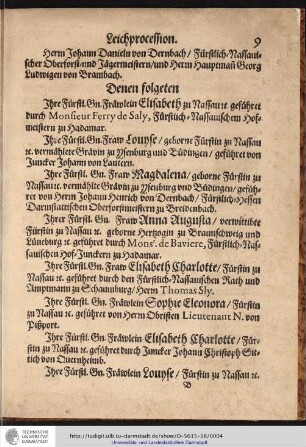 Leichprocession. 9
Herrn Johann Danieln von Dernbach / Fürstlich-Nassaui-
scher Oberforst-und Jägermeistern / und Herrn Hauptmañ Georg
Ludwigen von Brambach.
Denen folgeten
Ihre Fürstl. Gn. Fräwlein Elisabeth zu Nassau ꝛc. geführet
durch Monsieur Ferry de Saly, Fürstlich-Nassauischem Hof-
meistern zu Hadamar.
Ihre Fürstl. Gn. Fraw Louyse / geborne Fürstin zu Nassau
ꝛc. vermählete Grävin zu Ysenburg und Büdingen / geführet von
Juncker Johann von Lautern.
Ihre Fürstl. Gn. Fraw Magdalena / geborne Fürstin zu
Nassau ꝛc. vermählte Grävin zu Ysenburg vnd Büdingen / gefüh-
ret von Herrn Johann Henrich von Dernbach / Fürstlich-Hessen
Darmstattischen Oberforstmeistern zu Breidenbach.
Ihrer Fürstl. Gn. Fraw Anna Augusta / verwittibte
Fürstin zu Nassau ꝛc. geborne Hertzogin zu Braunschweig und
Lüneburg ꝛc. geführet durch Mons. de Baviere, Fürstlich-Nas-
sauischen Hof-Junckern zu Hadamar.
Ihre Fürstl. Gn. Fraw Elisabeth Charlotte / Fürstin zu
Nassau ꝛc. geführet durch den Fürstlich-Nassauischen Rath und
Amptmann zu Schaumburg / Herrn Thomas Sly.
Ihre Fürstl. Gn. Fräwlein Sophie Eleonora / Fürstin
zu Nassau ꝛc. geführet von Herrn Obristen Lieutenant N. von
Pißport.
Ihre Fürstl. Gn. Fräwlein Elisabeth Charlotte / Für-
stin zu Nassau ꝛc. geführet durch Juncker Johann Christoph Sit-
tich von Quernheimb.
Ihre Fürstl. Gn. Fräwlein Louyse / Fürstin zu Nassau ꝛc.
B
TECHNISCHE
UNIVERSITÄT
DARMSTADT
http://tudigit.ulb.tu-darmstadt.de/show/D-5615-18/0004
Universitäts- und Landesbibliothek Darmstadt